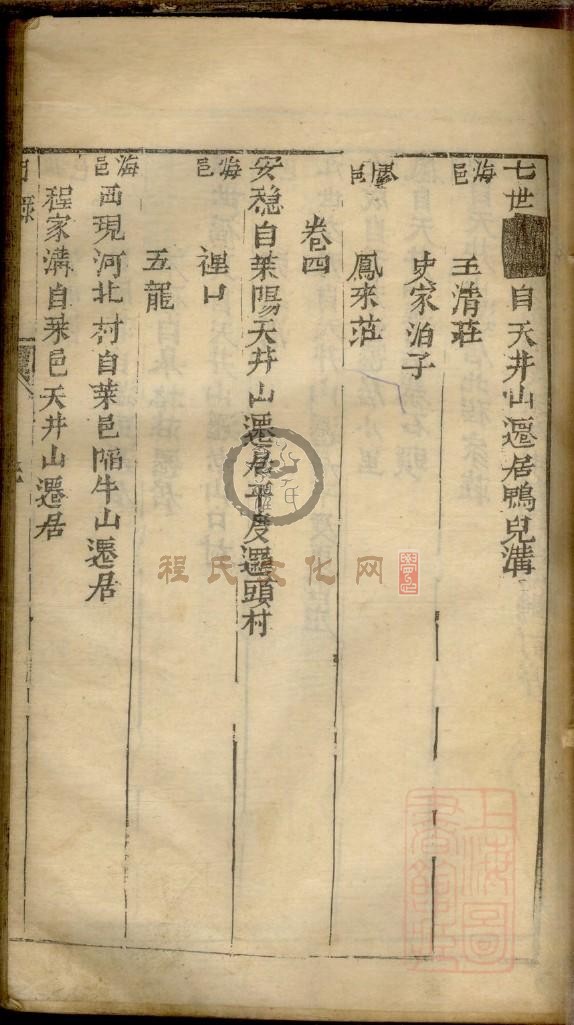 七世自天井山遷居鴨兒溝
海邑 王清莊
史家泊子
鳳來莊
卷四
安穩自萊陽天井山遷居平度遇頭村
海邑 裡口
五龍
海邑 西現河北村自萊邑隔牛山遷居
程家溝自萊邑天井山遷居
目錄
程氏文化网
上海圖書館藏